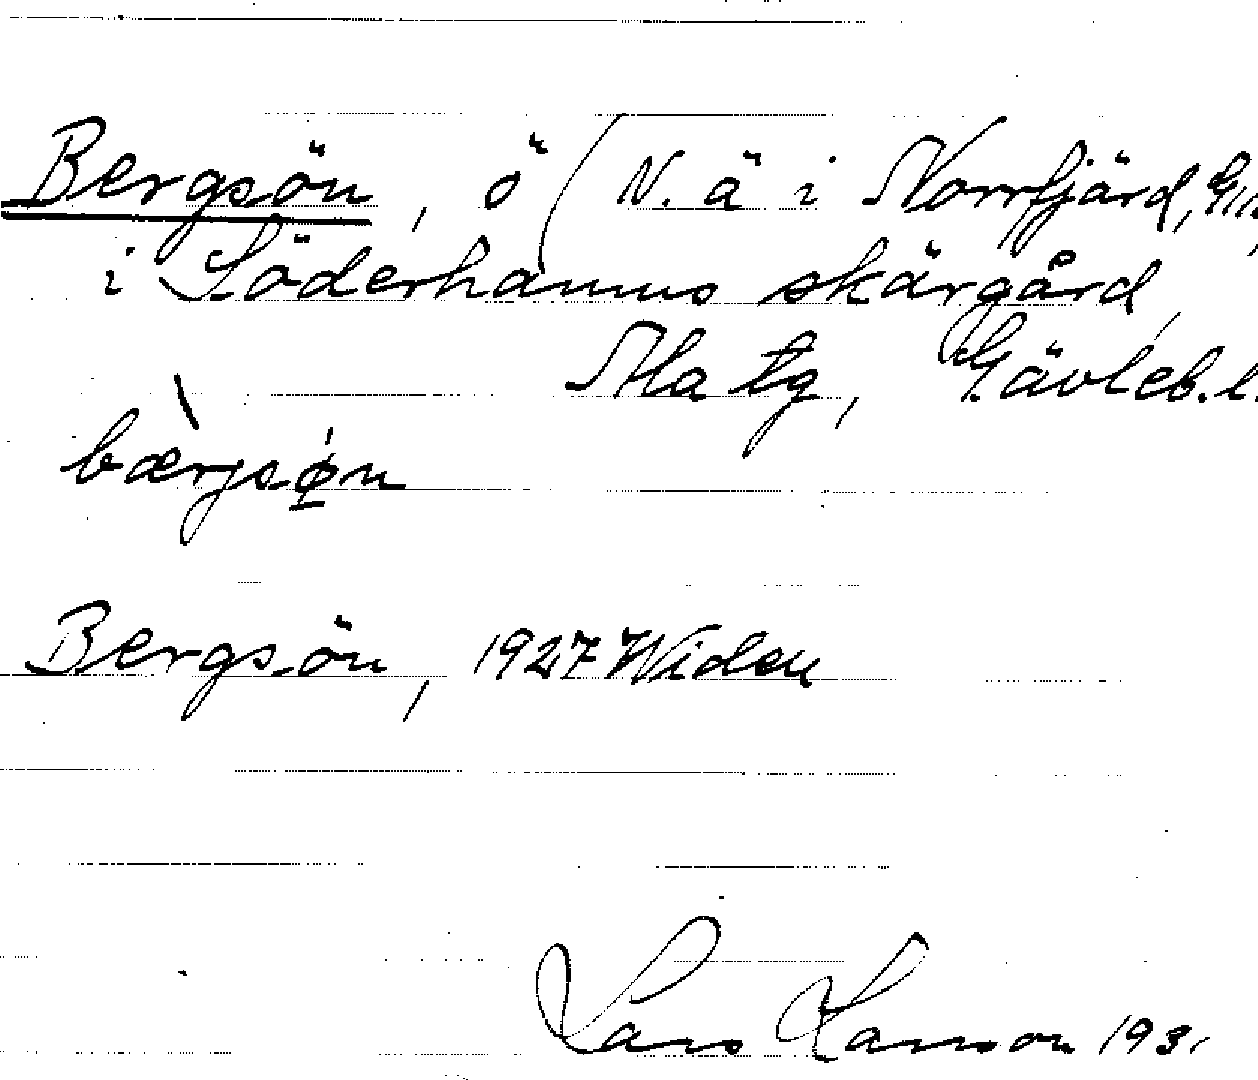 Bergsön, ö (N. ä i Norrfjärd,
i Söderhamns skärgård,
Ala tg, Gävleb. l.
bærjsøn
Bergsön, 1927 Widen
Lars Hanson 193